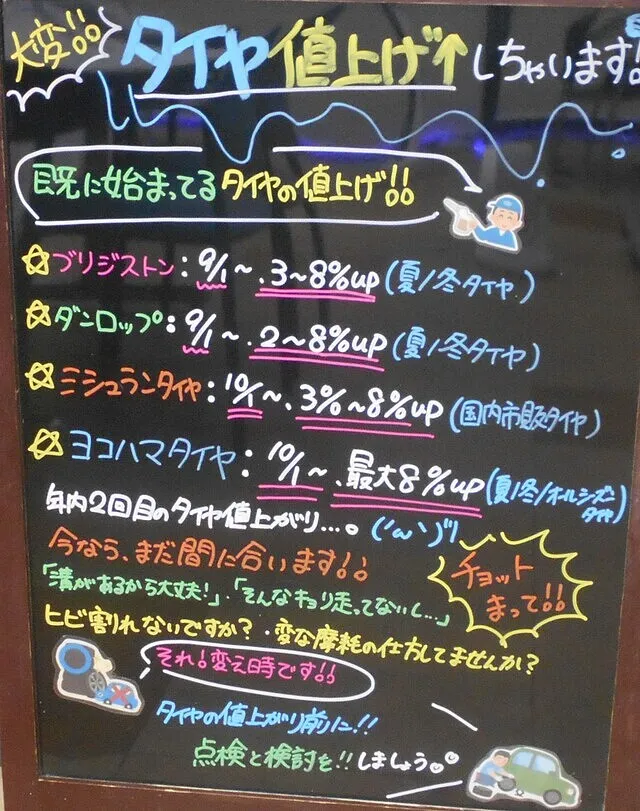 大変!!
タイヤ値上げ↑しちゃいます!
既に始まってるタイヤの値上げ!!
☆ブリジストン:9/1~.3~8%up(夏/冬タイヤ)
☆ダンロップ:9/1~.2~8%up(夏/冬タイヤ)
☆ミシュランタイヤ:10/1~.3%~8%up(国内市販タイヤ)
☆ヨコハマタイヤ:10/1~.最大8%up(夏/冬/オールシーズンタイヤ)
年内2回目のタイヤ値上がり...。(´ω`)
今なら、まだ間に合います!!
チョットまって!!
「溝があるから大丈夫!」・「そんなキョリ走ってないし...」
ヒビ割れないですか?・変な摩耗の仕方してませんか?
それ!変え時です!!
タイヤの値上がり前に!!
点検と検討を!!しましょう。